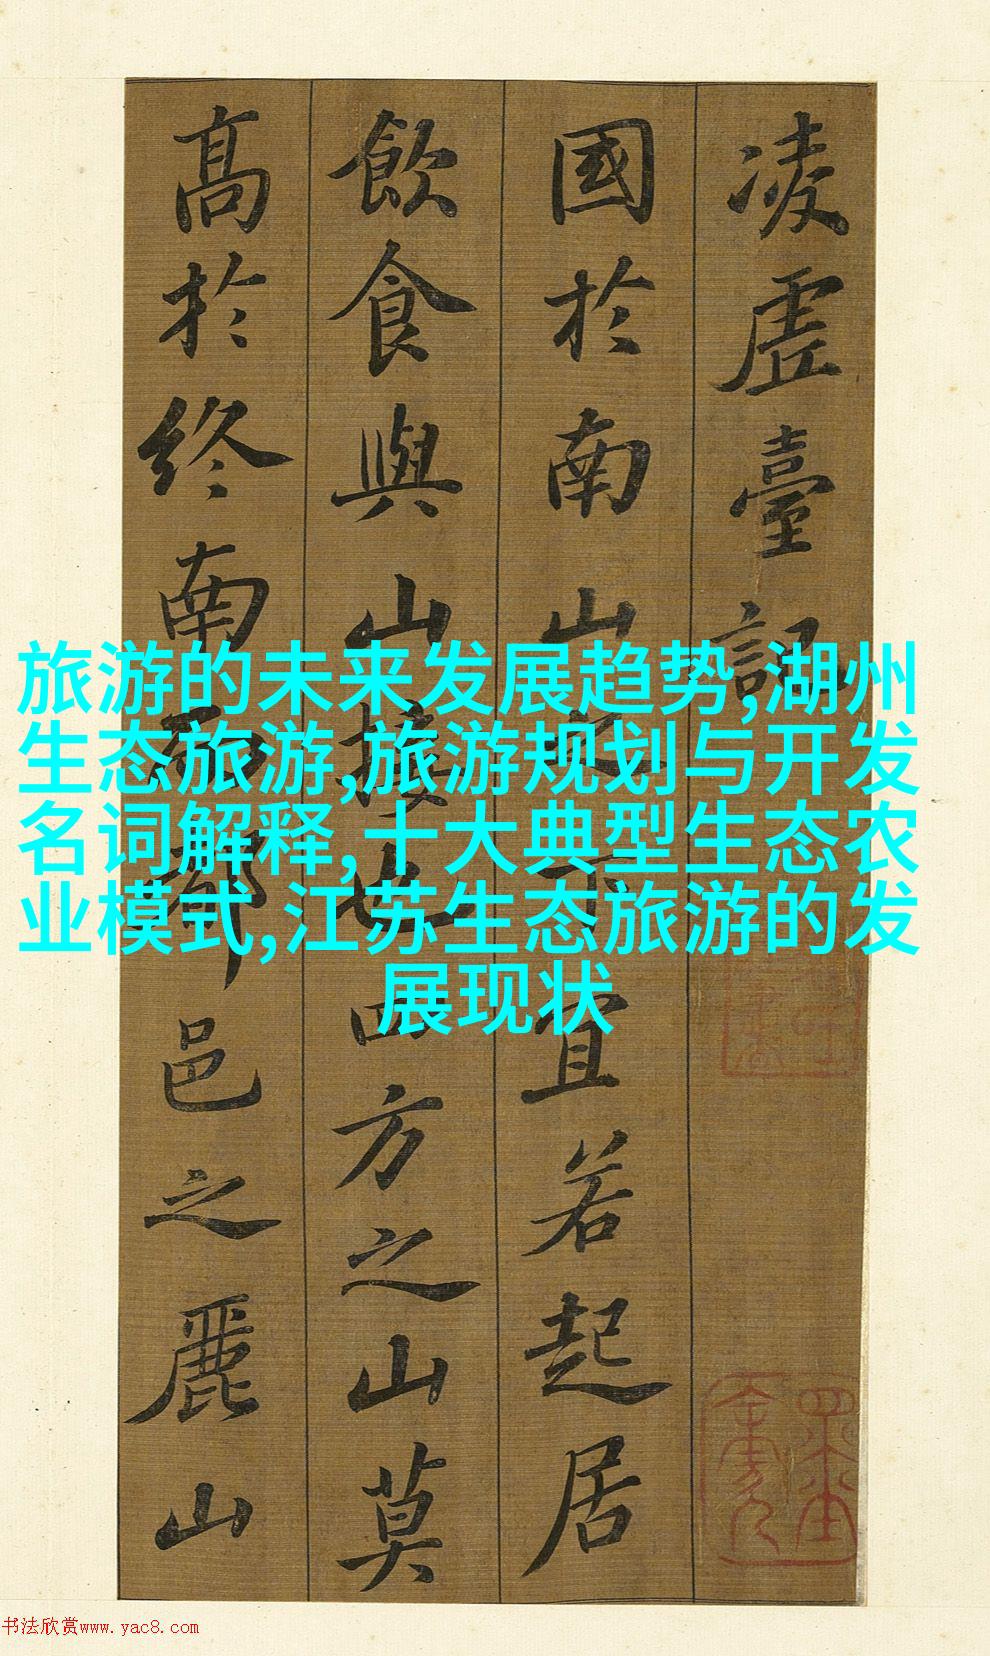 凌虛臺記
國於南山之下宜若起居
飲食與山接也四方之山莫
高於終南而都邑之麗山
旅游的未来发展趋势,湖州
生态旅游,旅游规划与开发
名词解释,十大典型生态农
业模式,江苏生态旅游的发
展现状
书法欣赏www.yac8.com